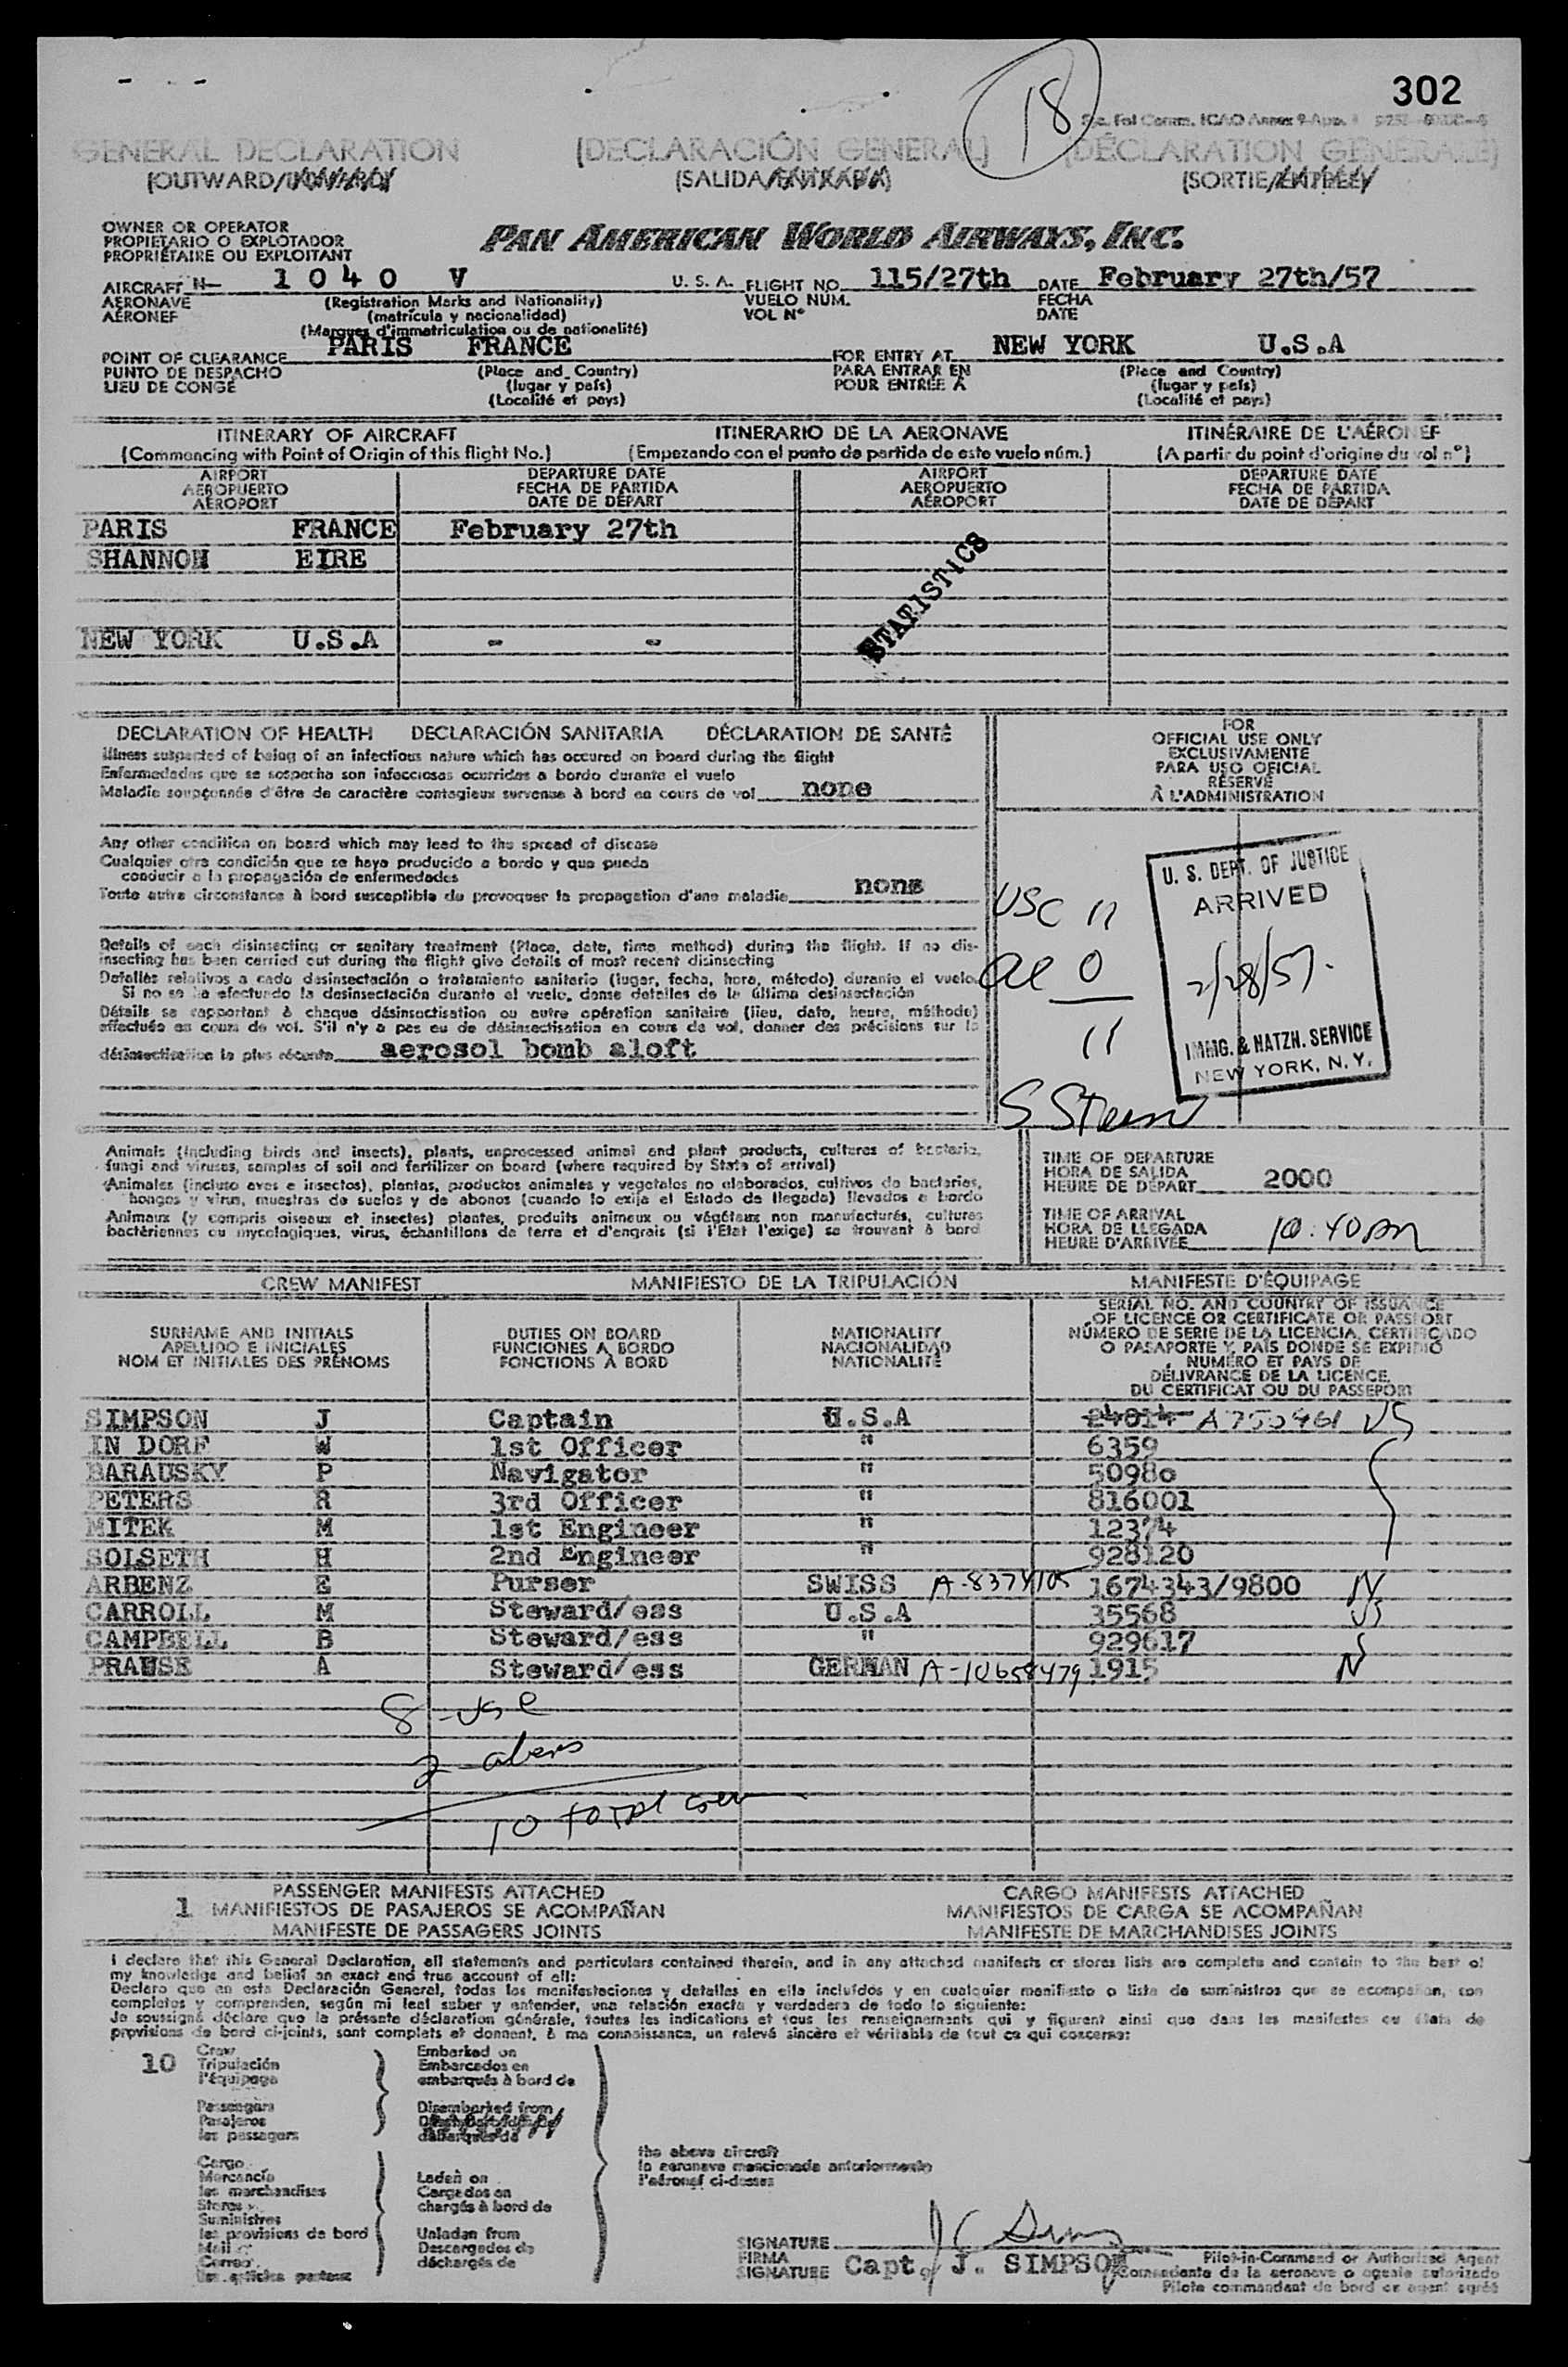 302
18
GENERAL DECLARATION (DECLARACIÓN GENERAL) (DÉCLARATION GENERALE)
(OUTWARD/ (SALIDA/ (SORTIE/
OWNER OR OPERATOR
PROPIETARIO O EXPLOTADOR
PROPRIÉTAIRE OU EXPLOITANT
PAN AMERICAN WORLD AIRWAYS, INC.
AIRCRAFT N- 1040 V U. S. A. FLIGHT NO. 115/27th DATE February 27th/57
AERONAVE (Registration Marks and Nationality) VUELO NÚM. FECHA
AÉRONEF (matrícula y nacionalidad) VOL N° DATE
(Marques d'immatriculation ou de nationalité)
POINT OF CLEARANCE PARIS FRANCE FOR ENTRY AT NEW YORK U.S.A
PUNTO DE DESPACHO (Place and Country) PARA ENTRAR EN (Place and Country)
LIEU DE CONGÉ (lugar y país) POUR ENTRÉE A (lugar y país)
(Localité et pays) (Localité et pays)
ITINERARY OF AIRCRAFT ITINERARIO DE LA AERONAVE ITINÉRAIRE DE L'AÉRONEF
(Commencing with Point of Origin of this flight No.) (Empezando con el punto de partida de este vuelo núm.) (A partir du point d'origine du vol n°)
AIRPORT DEPARTURE DATE AIRPORT DEPARTURE DATE
AEROPUERTO FECHA DE PARTIDA AEROPUERTO FECHA DE PARTIDA
AÉROPORT DATE DE DÉPART AÉROPORT DATE DE DÉPART
PARIS FRANCE February 27th
SHANNON EIRE
STATISTICS
NEW YORK U.S.A - -
DECLARATION OF HEALTH DECLARACIÓN SANITARIA DÉCLARATION DE SANTÉ
Illness suspected of being of an infectious nature which has occured on board during the flight
Enfermedades que se sospecha son infecciosas ocurridas a bordo durante el vuelo
Maladie soupçonnée d'être de caractère contagieux survenue à bord en cours de vol none
Any other condition on board which may lead to the spread of disease
Cualquier otra condición que se haya producido a bordo y que pueda
conducir a la propagación de enfermedades
Toute autre circonstance à bord susceptible de provoquer la propagation d'une maladie none
Details of each disinsecting or sanitary treatment (Place, date, time, method) during the flight. If no dis-
insecting has been carried out during the flight give details of most recent disinsecting
Detalles relativos a cada desinsectación o tratamiento sanitario (lugar, fecha, hora, método) durante el vuelo.
Si no se ha efectuado la desinsectación durante el vuelo, dense detalles de la última desinsectación
Détails se rapportant à chaque désinsectisation ou autre opération sanitaire (lieu, date, heure, méthode)
effectuée en cours de vol. S'il n'y a pas eu de désinsectisation en cours de vol, donner des précisions sur la
désinsectisation la plus récente aerosol bomb aloft
FOR
OFFICIAL USE ONLY
EXCLUSIVAMENTE
PARA USO OFICIAL
RÉSERVÉ
À L'ADMINISTRATION
USC 11
al 0
11
U. S. DEPT. OF JUSTICE
ARRIVED
2/28/57.
IMMIG. & NATZN. SERVICE
NEW YORK, N.Y.
Animals (including birds and insects), plants, unprocessed animal and plant products, cultures of bacteria,
fungi and viruses, samples of soil and fertilizer on board (where required by State of arrival)
Animales (incluso aves e insectos), plantas, productos animales y vegetales no elaborados, cultivos de bacterias,
hongos y virus, muestras de suelos y de abonos (cuando lo exija el Estado de llegada) llevados a bordo
Animaux (y compris oiseaux et insectes) plantes, produits animaux ou végétaux non manufacturés, cultures
bactériennes ou mycologiques, virus, échantillons de terre et d'engrais (si l'Etat l'exige) se trouvant à bord
TIME OF DEPARTURE
HORA DE SALIDA
HEURE DE DÉPART 2000
TIME OF ARRIVAL
HORA DE LLEGADA
HEURE D'ARRIVÉE 10:40 PM
CREW MANIFEST MANIFIESTO DE LA TRIPULACIÓN MANIFESTE D'ÉQUIPAGE
SURNAME AND INITIALS
APELLIDO E INICIALES
NOM ET INITIALES DES PRÉNOMS
DUTIES ON BOARD
FUNCIONES A BORDO
FONCTIONS À BORD
NATIONALITY
NACIONALIDAD
NATIONALITÉ
SERIAL NO. AND COUNTRY OF ISSUANCE
OF LICENCE OR CERTIFICATE OR PASSPORT
NÚMERO DE SERIE DE LA LICENCIA, CERTIFICADO
O PASAPORTE Y PAIS DONDE SE EXPIDIÓ
NUMÉRO ET PAYS DE
DÉLIVRANCE DE LA LICENCE,
DU CERTIFICAT OU DU PASSEPORT
SIMPSON J Captain U.S.A 24014 US
IN DORF W 1st Officer " 6359
BARAUSKY P Navigator " 50980
PETERS R 3rd Officer " 816001
MITEK M 1st Engineer " 12374
SOLSETH H 2nd Engineer " 928120
ARBENZ E Purser SWISS A-8374105 1674343/9800 N
CARROLL M Steward/ess U.S.A 35568 US
CAMPBELL B Steward/ess " 929617
PRAUSE A Steward/ess GERMAN A-10658479 1915 N
8 - usc
2 aliens
10 total crew
PASSENGER MANIFESTS ATTACHED CARGO MANIFESTS ATTACHED
1 MANIFIESTOS DE PASAJEROS SE ACOMPAÑAN MANIFIESTOS DE CARGA SE ACOMPAÑAN
MANIFESTE DE PASSAGERS JOINTS MANIFESTE DE MARCHANDISES JOINTS
I declare that this General Declaration, all statements and particulars contained therein, and in any attached manifests or stores lists are complete and contain to the best of
my knowledge and belief an exact and true account of all:
Declaro que en esta Declaración General, todas las manifestaciones y detalles en ella incluídos y en cualquier manifiesto o lista de suministros que se acompañan, son
completos y comprenden, según mi leal saber y entender, una relación exacta y verdadera de todo lo siguiente:
Je soussigné déclare que la présente déclaration générale, toutes les indications et tous les renseignements qui y figurent ainsi que dans les manifestes ou états de
provisions de bord ci-joints, sont complets et donnent, à ma connaissance, un relevé sincère et véritable de tout ce qui concerne:
10 Crew
Tripulación
l'équipage
Passengers
Pasajeros
les passagers
Cargo
Mercancía
les marchandises
Stores
Suministros
les provisions de bord
Mail
Correo
Embarked on
Embarcados en
embarqués à bord de
Disembarked from
débarqués de
Laden on
Cargados en
chargés à bord de
Unladen from
Descargados de
déchargés de
the above aircraft
la aeronave mencionada anteriormente
l'aéronef ci-dessus
SIGNATURE
FIRMA
SIGNATURE Capt. J. SIMPSON
Pilot-in-Command or Authorized Agent
Comandante de la aeronave o agente autorizado
Pilote commandant de bord or agent agréé